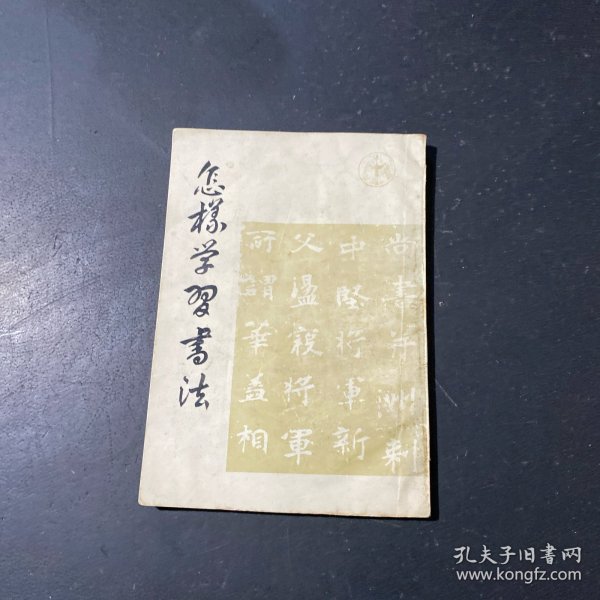 怎樣学習書法
尚書并洲刺
中堅将軍新
父温親将軍
所謂華蓋相
孔夫子旧書网
www.kongfz.com